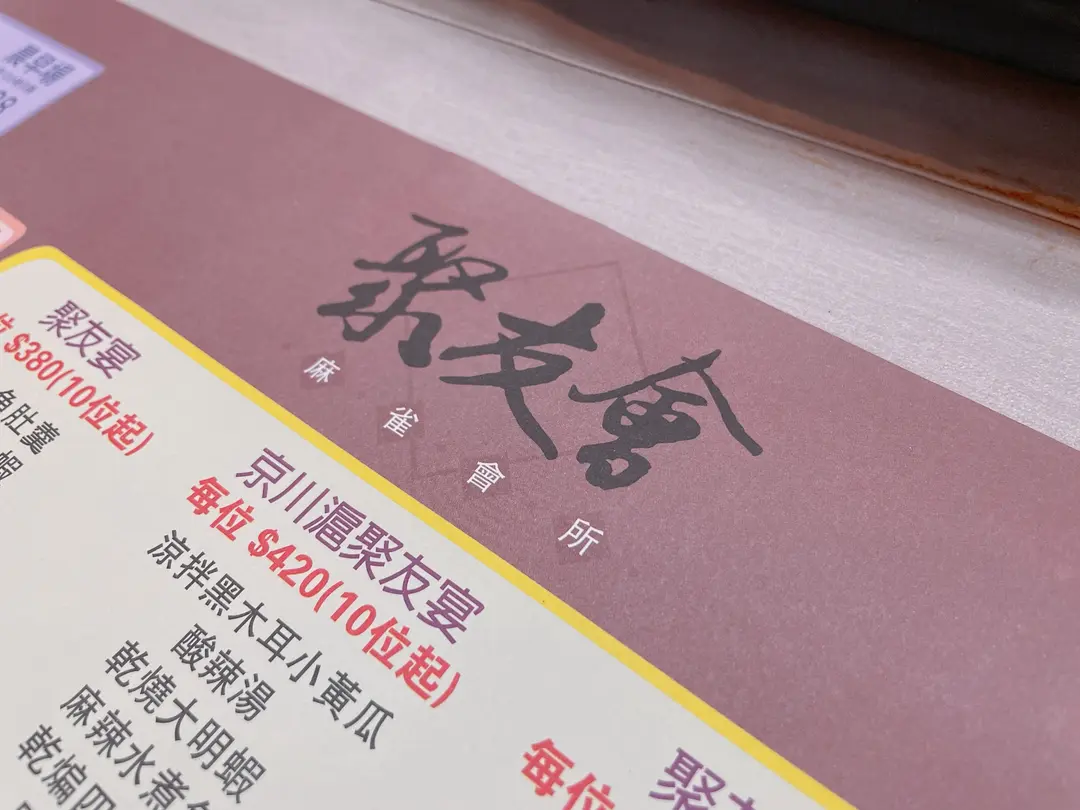 聚友會
麻雀會所
聚友宴
位 $380(10位起)
魚肚羹
蝦
京川滬聚友宴
每位 $420(10位起)
涼拌黑木耳小黃瓜
酸辣湯
乾燒大明蝦
麻辣水煮
乾煸四
聚友
每位